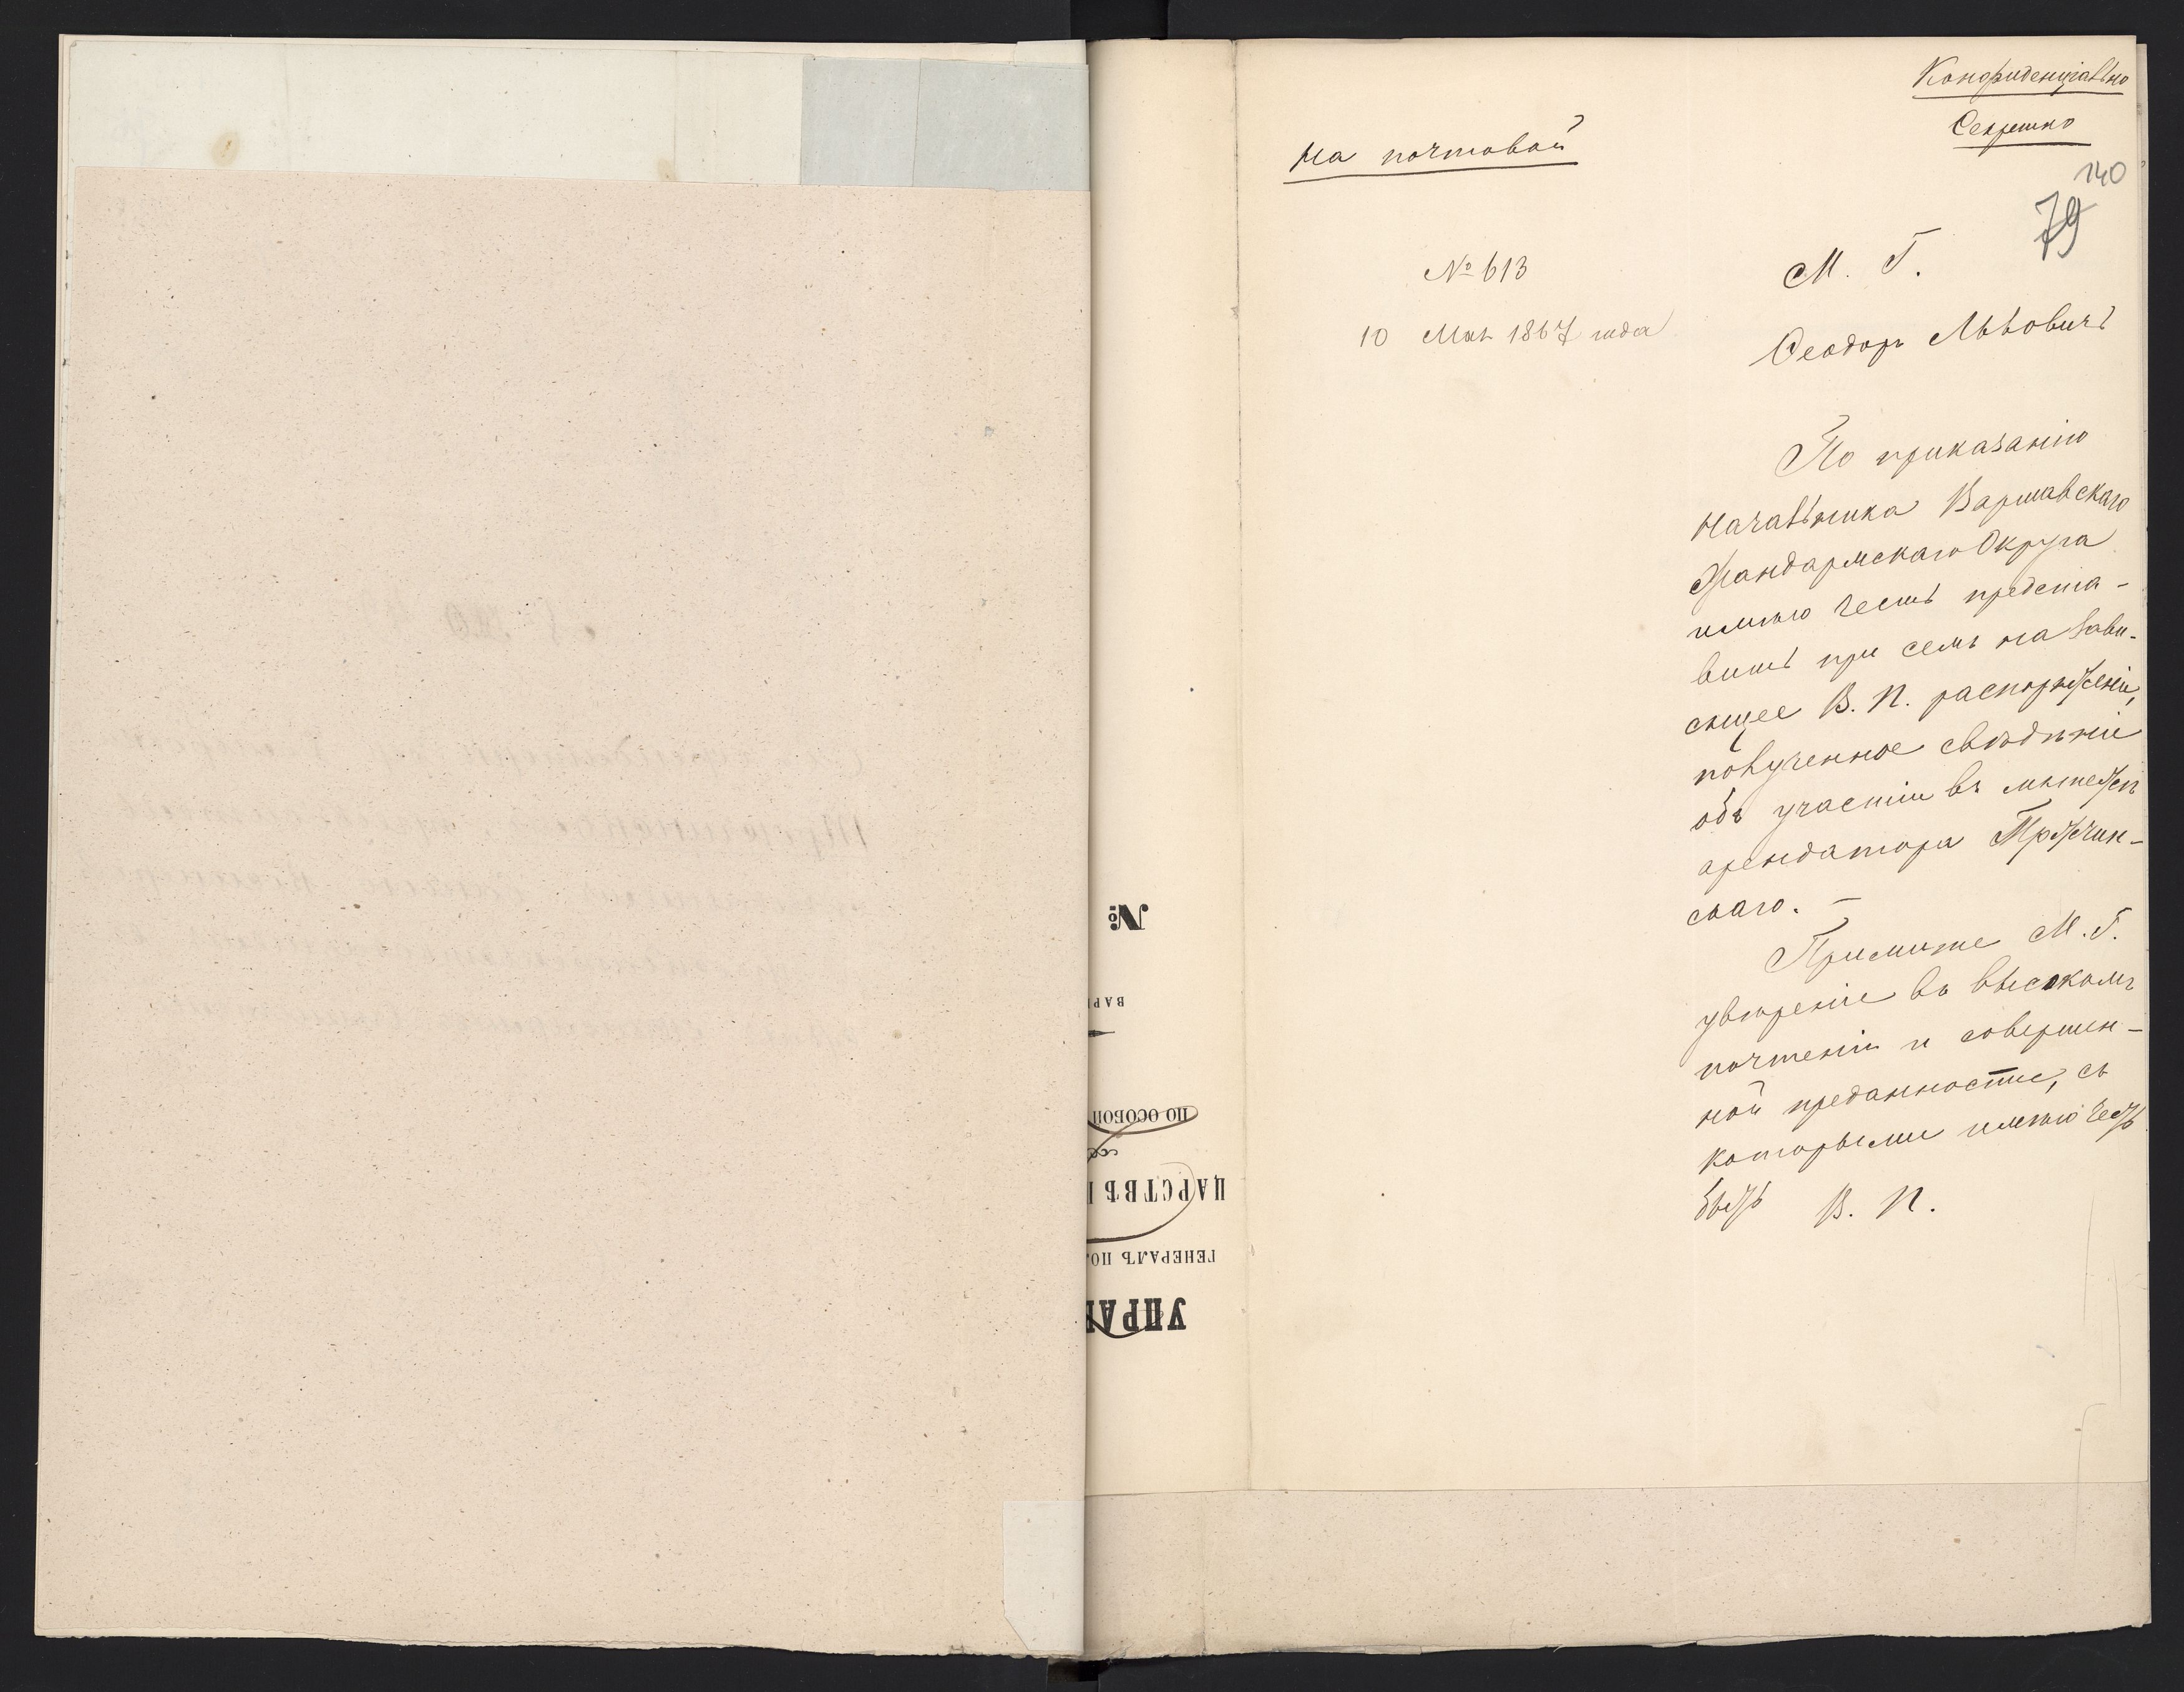 Конфиденціально
Секретно
На почтовой
140
79
№ 613
10 Мая 1867 года
М. Г.
Ѳеодоръ Львовичъ
По приказанію
Начальника Варшавскаго
Жандармскаго Округа
имѣю честь предста-
вить при семъ на зави-
сящее В. П. распоряженіе,
полученное свѣдѣніе
объ участіи въ мятежѣ
арендатора
скаго. —
Примите М. Г.
увѣреніе въ высокомъ
почтеніи и совершен-
ной преданности, съ
которыми имѣю честь
быть В. П.
№
ВАР
ПО ОСОБОЙ
ЦАРСТВѢ
ГЕНЕРАЛЪ ПО
УПРАВ